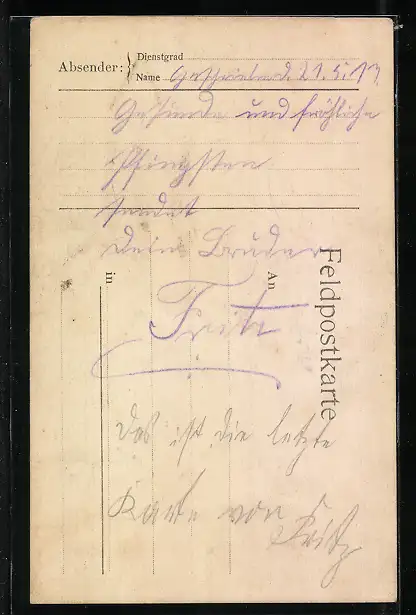 Dienstgrad
Absender:
Name Geschrieben d. 21.5.17.
Gesunde und fröhliche
Pfingsten
sendet
Dein Bruder
Fritz
in
An
Feldpostkarte
Das ist die letzte
Karte von
Fritz